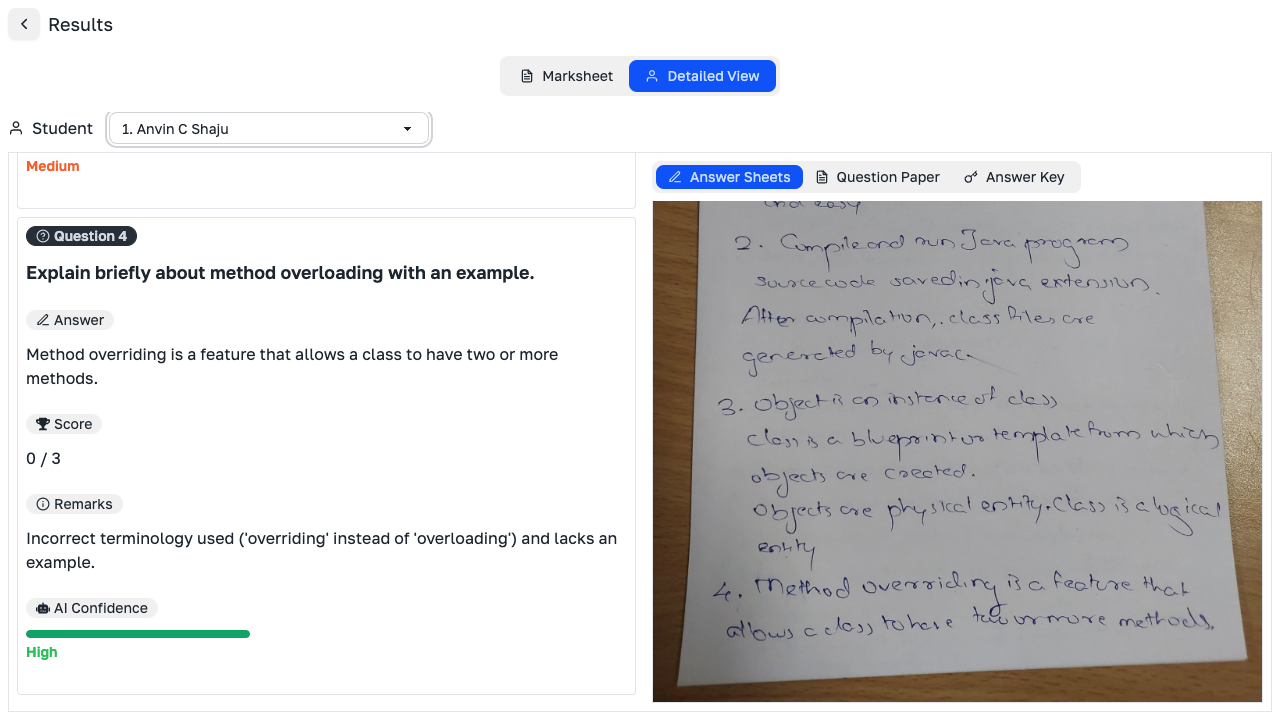 Results
Marksheet
Detailed View
Student
1. Anvin C Shaju
Medium
Question 4
Explain briefly about method overloading with an example.
Answer
Method overriding is a feature that allows a class to have two or more
methods.
Score
0 / 3
Remarks
Incorrect terminology used ('overriding' instead of 'overloading') and lacks an
example.
AI Confidence
High
Answer Sheets
Question Paper
Answer Key
and easy
2. Compile and run Java program
source code saved in java extension.
After compilation, class files are
generated by javac.
3. Object is an instance of class
class is a blueprint or template from which
objects are created.
Objects are physical entity. Class is a logical
entity
4. Method overriding is a feature that
allows a class to have two or more methods.